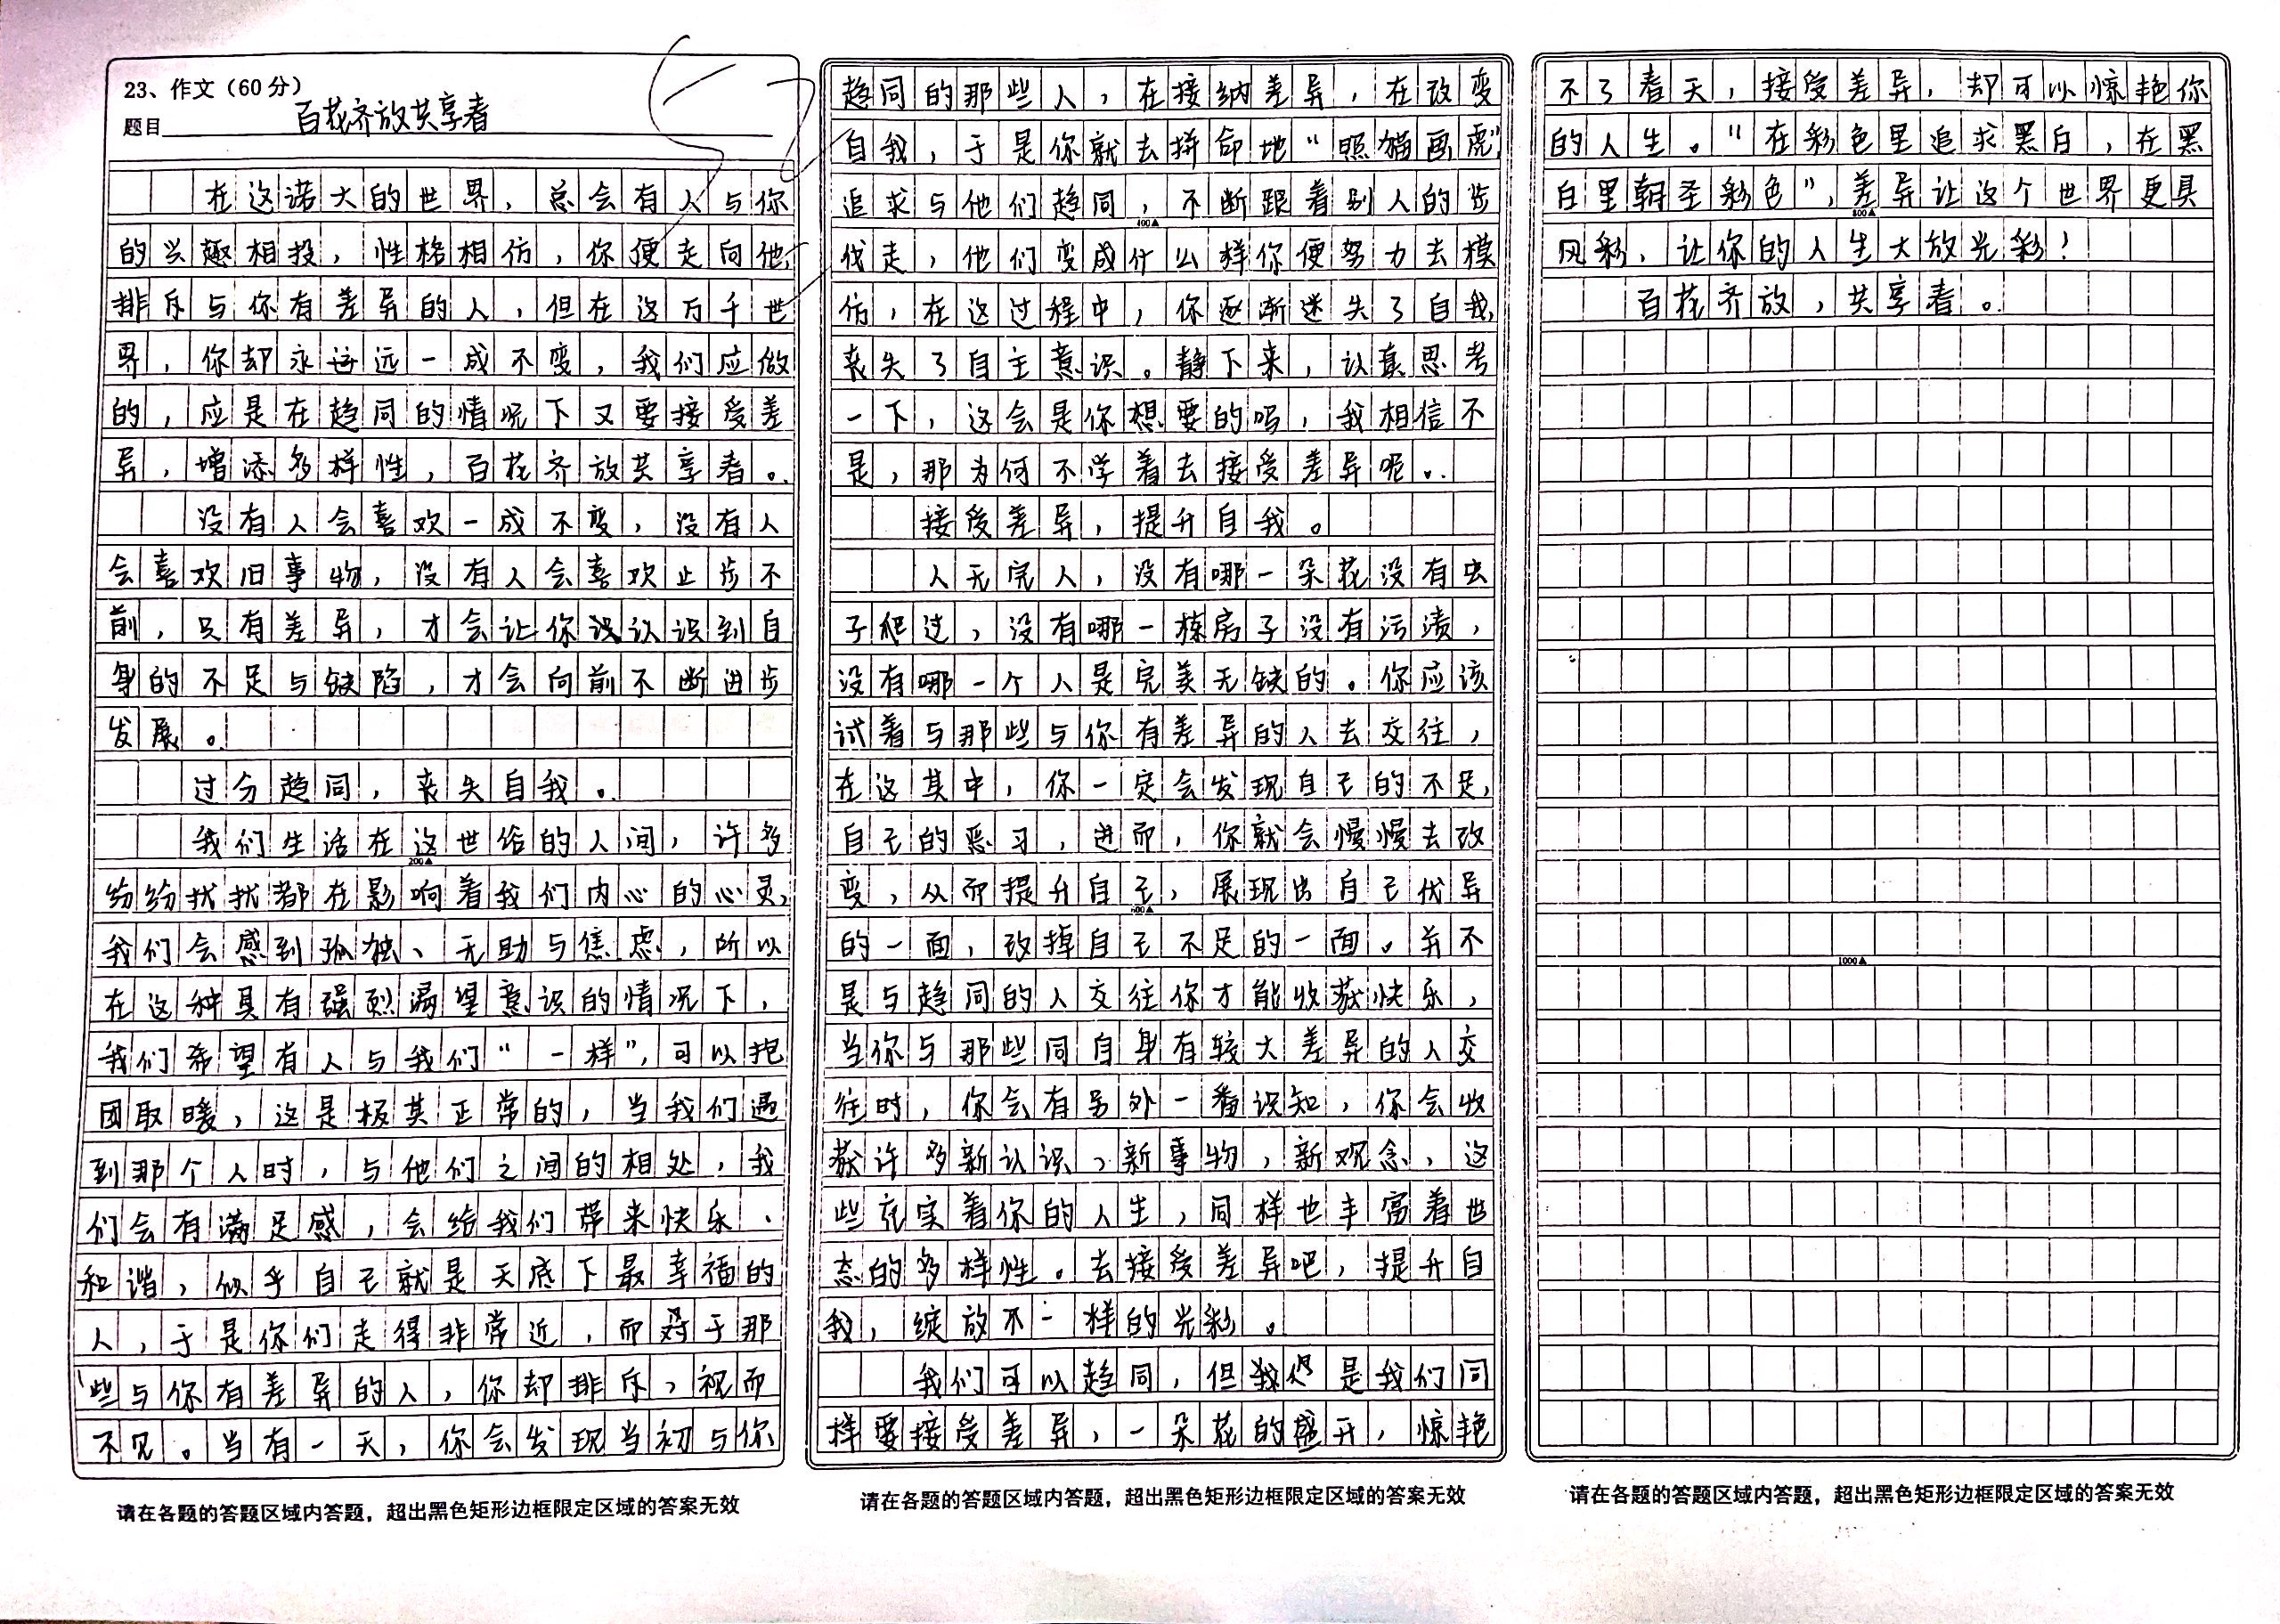 23、作文（60分）
题目 百花齐放共享春
57
在这诺大的世界，总会有人与你
的兴趣相投，性格相仿，你便走向他，
排斥与你有差异的人，但在这万千世
界，你却永远一成不变，我们应做
的，应是在趋同的情况下又要接受差
异，增添多样性，百花齐放共享春。
没有人会喜欢一成不变，没有人
会喜欢旧事物，没有人会喜欢止步不
前，只有差异，才会让你认识到自
身的不足与缺陷，才会向前不断进步
发展。
过分趋同，丧失自我。
我们生活在这世俗的人间，许多
200▲
纷纷扰扰都在影响着我们内心的心灵，
我们会感到孤独、无助与焦虑，所以
在这种具有强烈渴望意识的情况下，
我们希望有人与我们“一样”，可以抱
团取暖，这是极其正常的，当我们遇
到那个人时，与他们之间的相处，我
们会有满足感，会给我们带来快乐、
和谐，似乎自己就是天底下最幸福的
人，于是你们走得非常近，而对于那
些与你有差异的人，你却排斥，视而
不见。当有一天，你会发现当初与你
请在各题的答题区域内答题，超出黑色矩形边框限定区域的答案无效
趋同的那些人，在接纳差异，在改变
自我，于是你就去拼命地“照猫画虎”
追求与他们趋同，不断跟着别人的步
400▲
伐走，他们变成什么样你便努力去模
仿，在这过程中，你逐渐迷失了自我，
丧失了自主意识。静下来，认真思考
一下，这会是你想要的吗，我相信不
是，那为何不学着去接受差异呢。
接受差异，提升自我。
人无完人，没有哪一朵花没有虫
子爬过，没有哪一栋房子没有污渍，
没有哪一个人是完美无缺的。你应该
试着与那些与你有差异的人去交往，
在这其中，你一定会发现自己的不足，
自己的恶习，进而，你就会慢慢去改
变，从而提升自己，展现出自己优异
600▲
的一面，改掉自己不足的一面。并不
是与趋同的人交往你才能收获快乐，
当你与那些同自身有较大差异的人交
往时，你会有另外一番识知，你会收
获许多新认识、新事物，新观念，这
些充实着你的人生，同样也丰富着世
态的多样性。去接受差异吧，提升自
我，绽放不一样的光彩。
我们可以趋同，但是我们同
样要接受差异，一朵花的盛开，惊艳
请在各题的答题区域内答题，超出黑色矩形边框限定区域的答案无效
不了春天，接受差异，却可以惊艳你
的人生。“在彩色里追求黑白，在黑
白里朝圣彩色”，差异让这个世界更具
800▲
风彩，让你的人生大放光彩！
百花齐放，共享春。
1000▲
请在各题的答题区域内答题，超出黑色矩形边框限定区域的答案无效